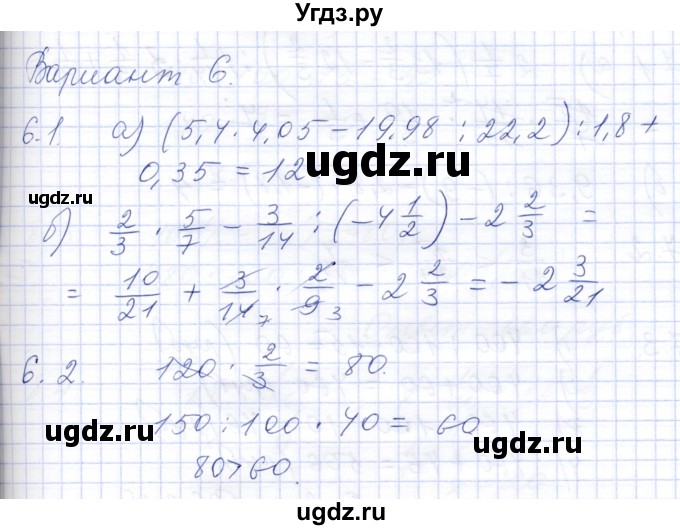 Угдз.ру
Вариант 6.
6.1. а) (5,4 · 4,05 − 19,98 : 22,2) : 1,8 +
0,35 = 12
ugdz.ru ugdz.ru
б) 2/3 · 5/7 − 3/14 : (−4 1/2) − 2 2/3 =
= 10/21 + 3/14 7 · 2/9 3 − 2 2/3 = −2 3/21
ugdz.ru
6.2. 120 · 2/3 = 80.
ugdz.ru
150 : 100 · 40 = 60
ugdz.ru
80>60.
ugdz.ru
Угдз.ру